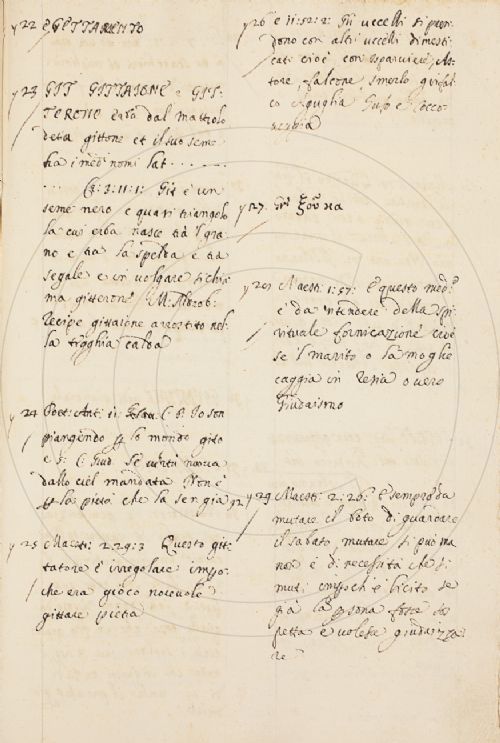 22 E GETTAMENTO
23 GIT GITTAIONE e GIT-
TERONE erba dal Mattiolo
detta gittone et il suo seme
ha i med.i nomi lat. . . . .
. . . Cr: 3: 11: 1: Git è un
seme nero e quasi triangolo
la cui erba nasce tra 'l gra-
no e tra la spelda e tra
segale e in volgare si chia
ma gitterone M: Aldob:
Recipe gittaione arrostito nel-
la tegghia calda
24 Poet: Ant:
piangendo lo mondo gito
e
dallo ciel mandata Non è
la pietà che la sen gia
25 Maestr: 2: 29: 3 Questo git-
tatore è irregolare impo-
che era gioco nocevole
gittare pietra
26 e 11: 52: 2: Gli uccelli si pren-
dono con altri uccelli dimesti-
cati cioè con isparviere, As-
tore, falcone, smerlo, girifal-
co Aguglia, Gufo e Cocco-
veggia
27
Maestr: 1: 57: E questo med.o
è da 'ntendere della spi-
rituale fornicazione cioè
se 'l marito o la moglie
caggia in resia o vero
Giudaismo
29 Maestr: 2: 26: E sempre da
mutare il boto di guardare
il sabato, mutare si può ma
non è di necessità che si
muti impoch' è licito se
già la persona fosse so
spetta e volesse giudaizza
re